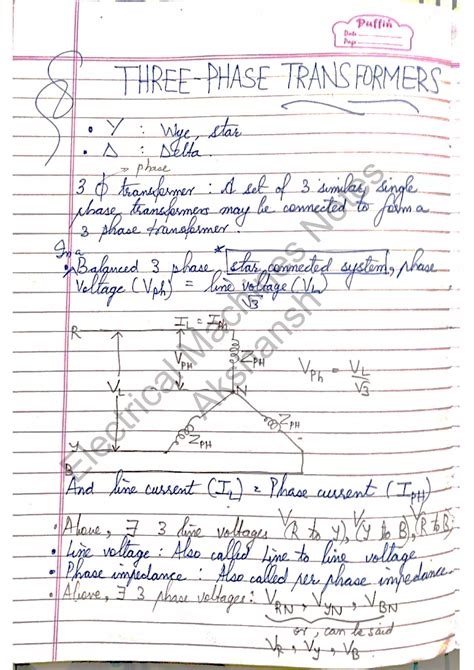 Puffin
Date
Page
THREE-PHASE TRANSFORMERS
• Y : Wye, star
• Δ : Delta
→ phase
3 ϕ transformer : A set of 3 similar single
phase transformers may be connected to form a
3 phase transformer
In a
• Balanced 3 phase * star connected system, phase
voltage (Vph) = line voltage (VL)
√3
IL = IPh
R
VPH
ZPH
VPh = VL
√3
VL
N
ZPH
ZPH
Y
B
And line current (IL) = Phase current (IPH)
• Above, ∃ 3 line voltages V(R to Y), V(Y to B), V(R to B)
• Line voltage : Also called Line to line voltage
• Phase impedance : Also called per phase impedance
• Above, ∃ 3 phase voltages : VRN, VYN, VBN
or, can be said
VR, VY, VB
Electrical Machines Notes
Akshansh